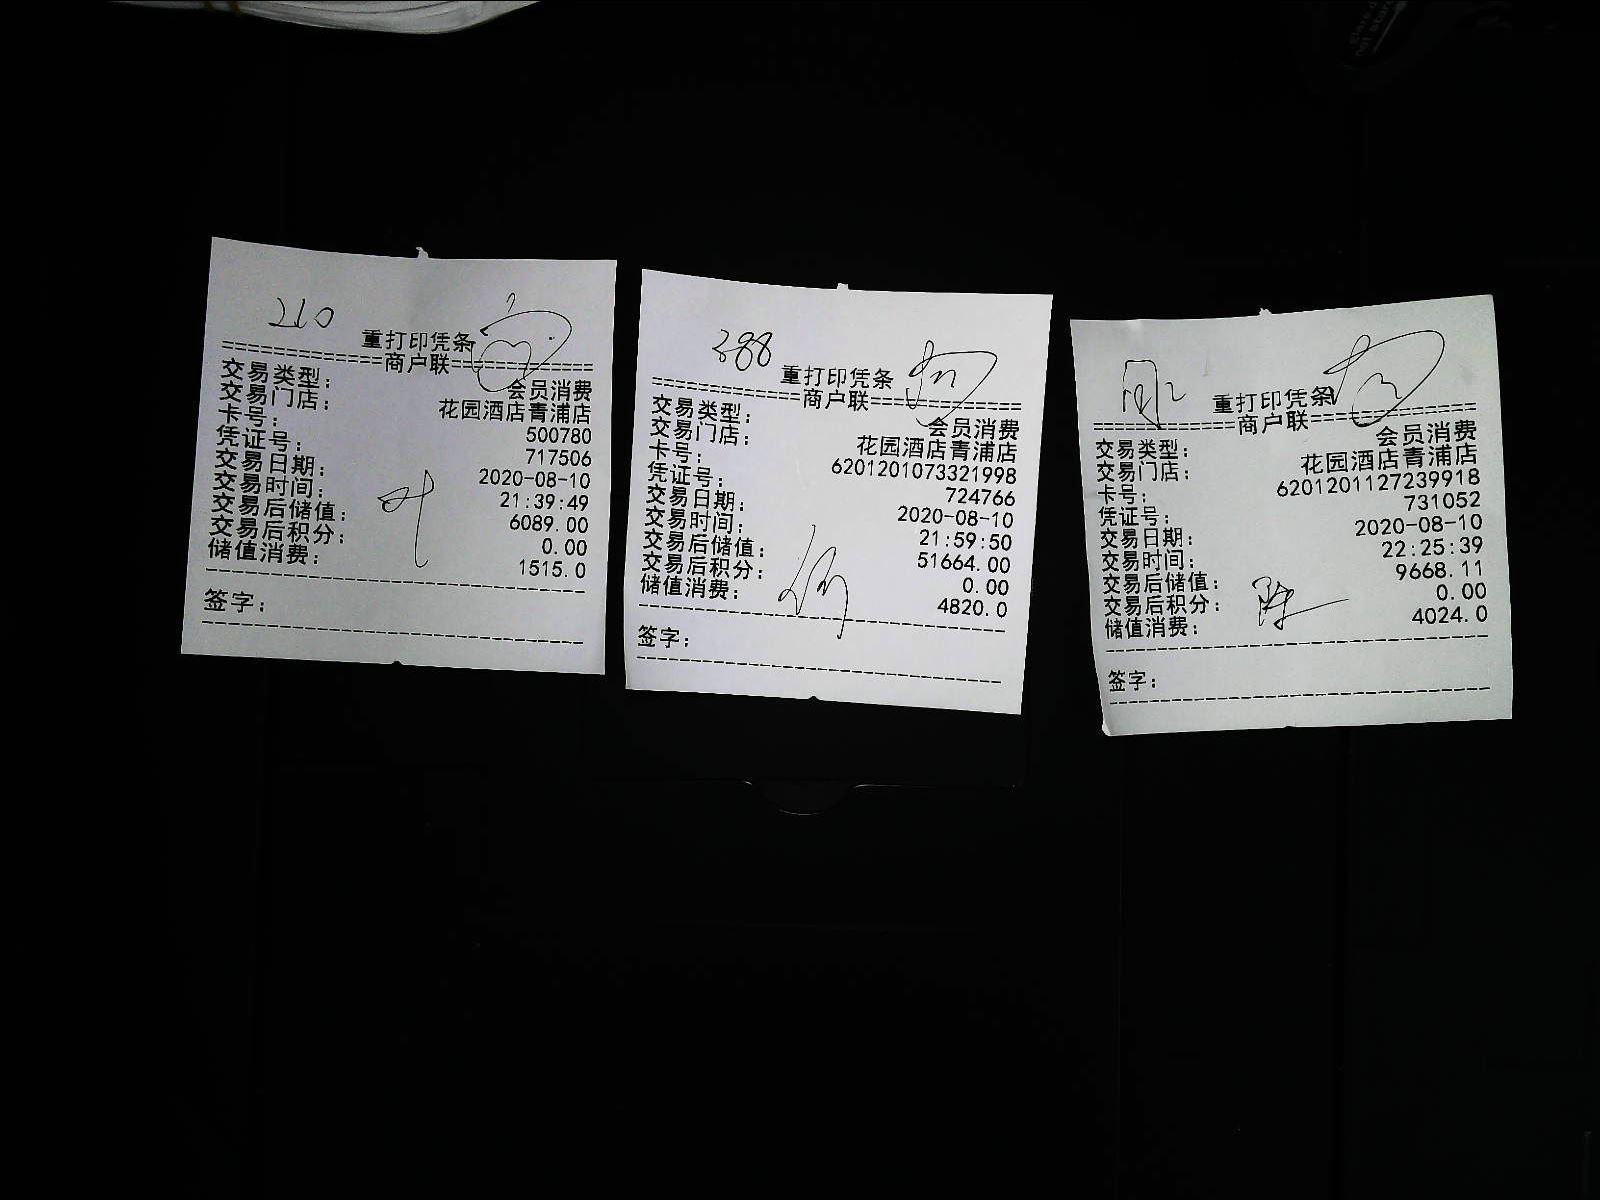 210
重打印凭条
============商户联============
交易类型： 会员消费
交易门店： 花园酒店青浦店
卡号： 500780
凭证号： 717506
交易日期： 2020-08-10
交易时间： 21:39:49
交易后储值： 6089.00
交易后积分： 0.00
储值消费： 1515.0
签字：
388
重打印凭条
============商户联============
交易类型： 会员消费
交易门店： 花园酒店青浦店
卡号： 6201201073321998
凭证号： 724766
交易日期： 2020-08-10
交易时间： 21:59:50
交易后储值： 51664.00
交易后积分： 0.00
储值消费： 4820.0
签字：
重打印凭条
============商户联============
交易类型： 会员消费
交易门店： 花园酒店青浦店
卡号： 6201201127239918
凭证号： 731052
交易日期： 2020-08-10
交易时间： 22:25:39
交易后储值： 9668.11
交易后积分： 0.00
储值消费： 4024.0
签字：